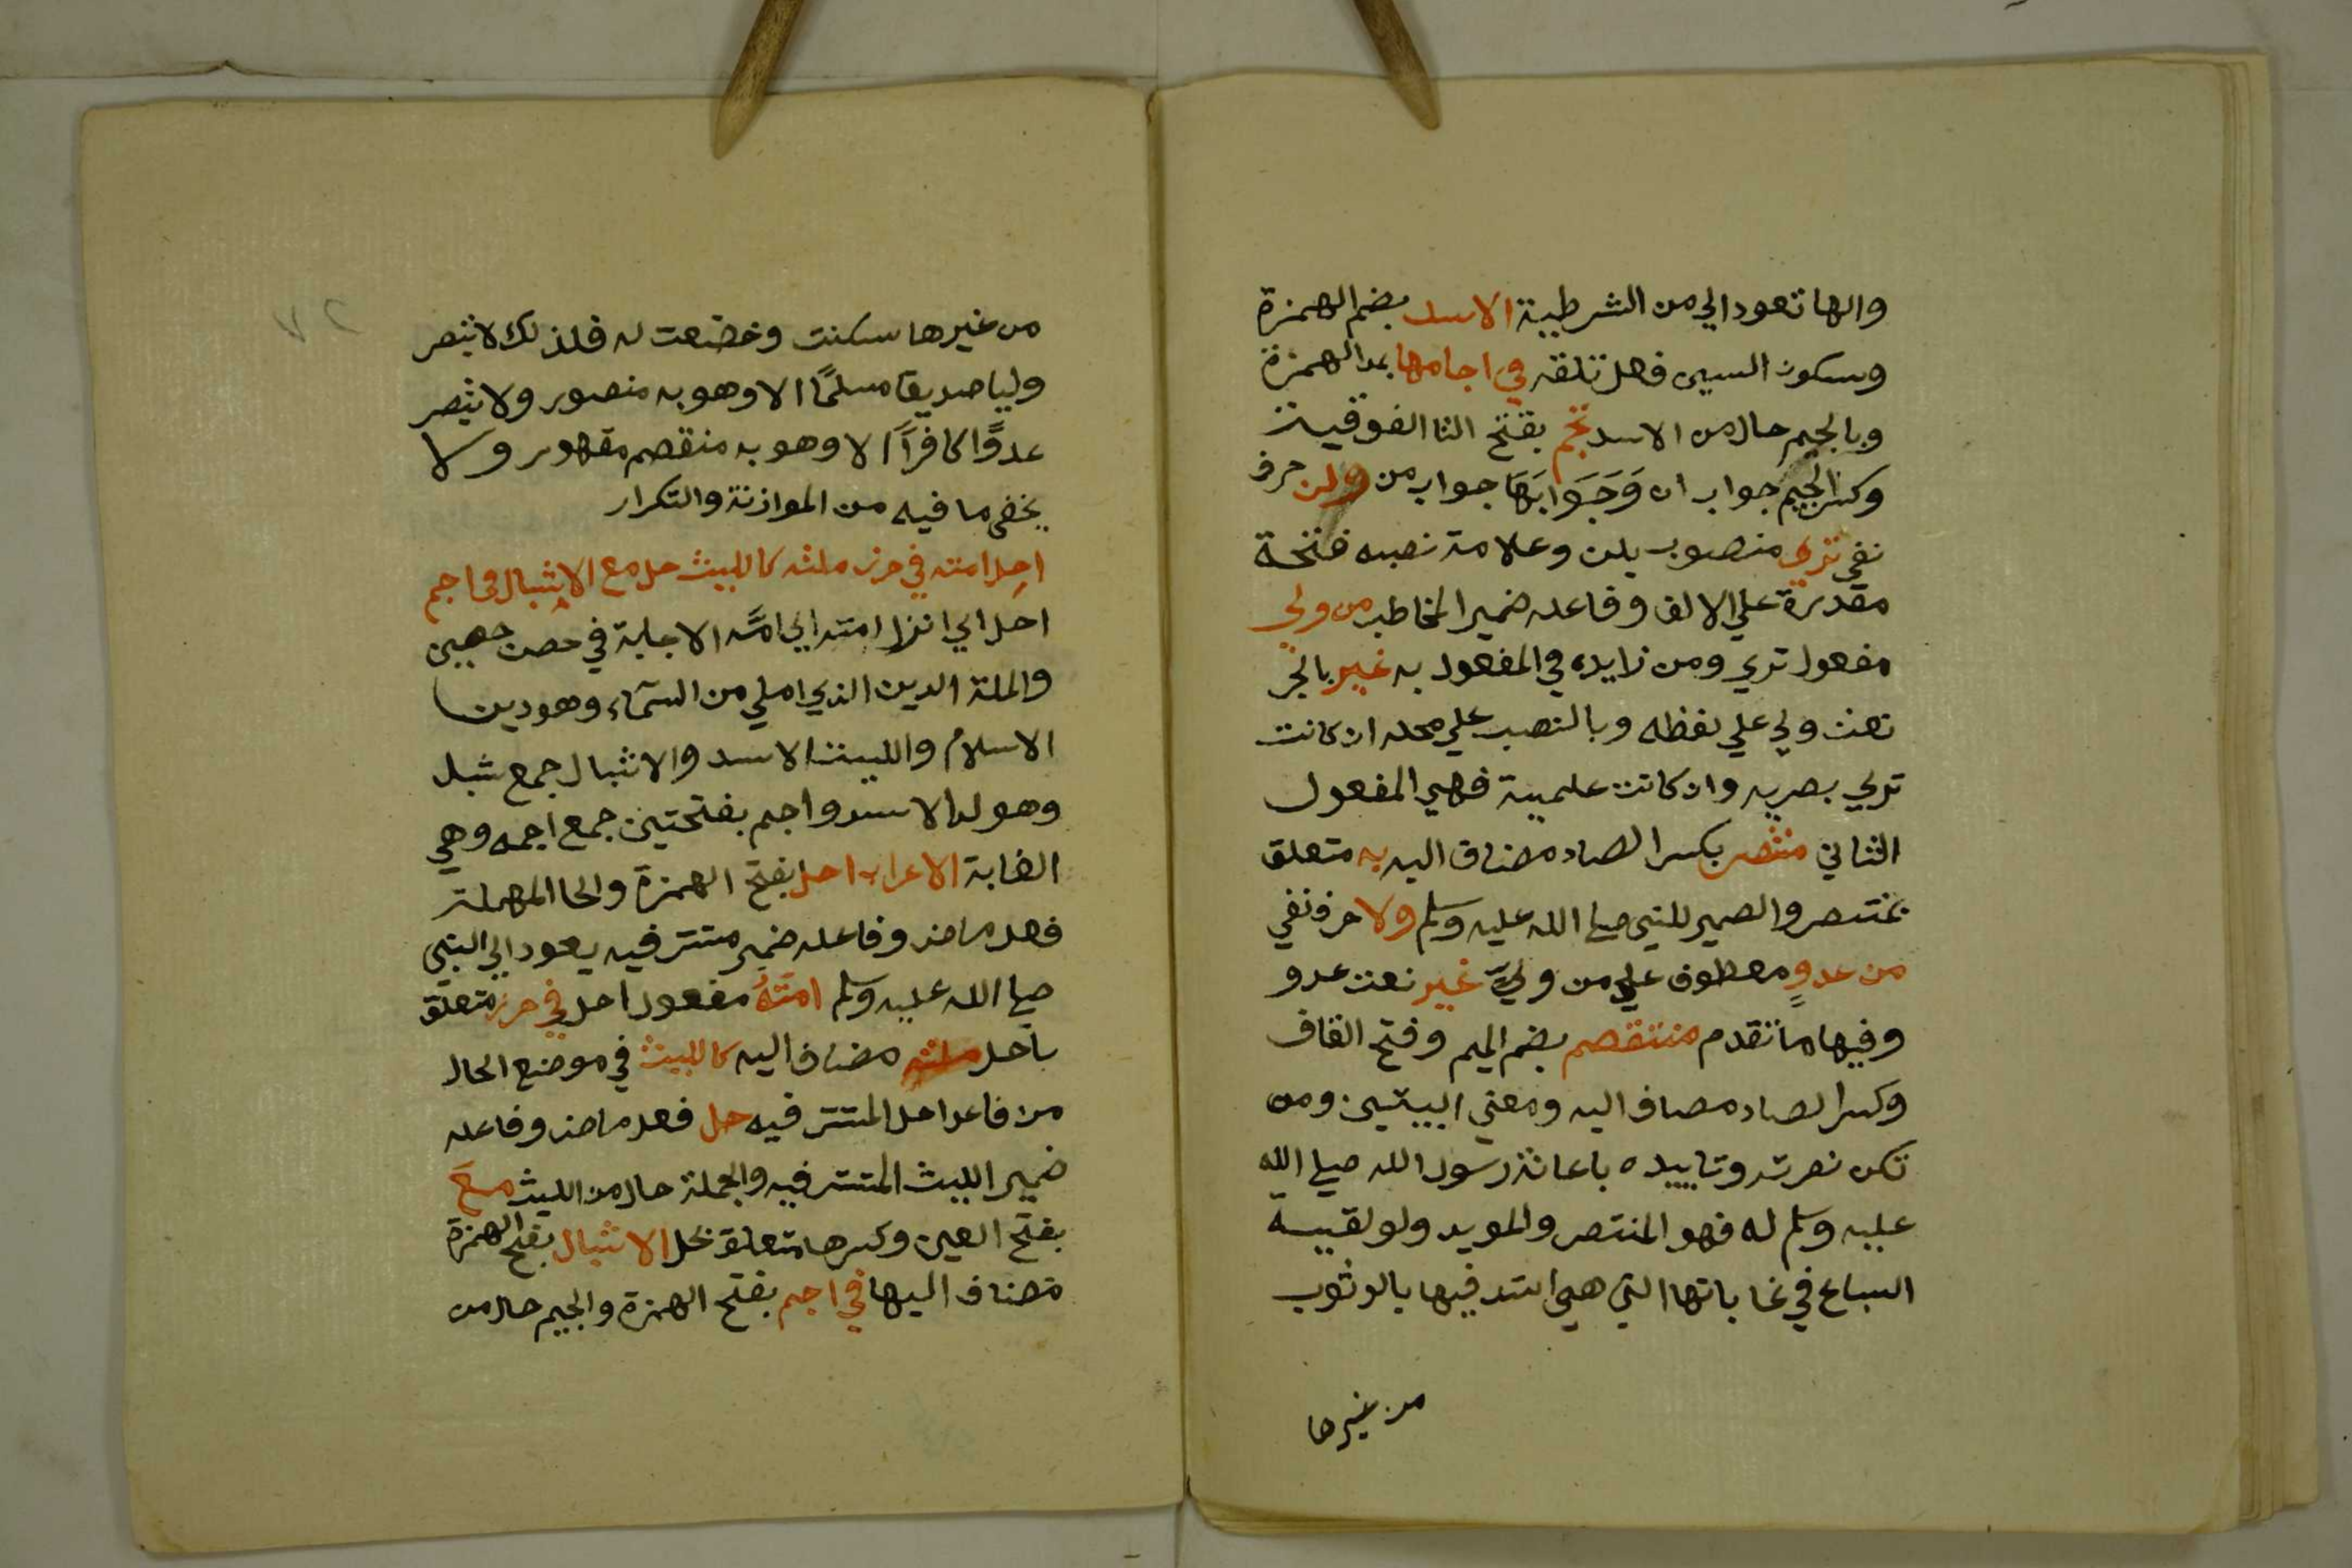 والها تعود الي من الشرطية الاسد بضم الهمزة
وسكون السين فعل تلقه في اجامها بمد الهمزة
وبالجيم حال من الاسد تجم بفتح التا الفوقية
وكسر الجيم جواب ان وَجَوَابَهَا جواب من ولن حرف
نفي تري منصوب بلن وعلامة نصبه فتحة
مقدرة علي الالف وفاعله ضمير المخاطب من ولي
مفعول تري ومن زايده في المفعول به غير بالجر
نعت ولي علي لفظه وبالنصب علي محله ان كانت
تري بصريه وان كانت علمية فهي المفعول
الثاني منتصر بكسر الصاد مضاف اليه به متعلق
بمنتصر والضمير للنبي صلي الله عليه وسلم ولا حرف نفي
من عدوٍ معطوف علي من وليّ غير نعت عدو
وفيها ما تقدم منتقصم بضم الميم وفتح القاف
وكسر الصاد مضاف اليه ومعني البيتين ومن
تكن نصرته وتاييده باعانة رسول الله صلي الله
عليه وسلم له فهو المنتصر والمويد ولو لقيته
السباع في غاباتها التي هي اشد فيها بالوثوب
من غيرها
٧٢
من غيرها سكنت وخضعت له فلذلك لا تبصر
وليا صديقا مسلمًا الا وهو به منصور ولا تبصر
عدوًا كافراً الا وهو به منقصم مقهور ولا
يخفي ما فيه من الموازنة والتكرار
احل امته في حرز ملته كالليث حل مع الاشبال في اجم
احل اي انزل امته اي امّته الاجابة في حصن حصين
والملة الدين الذي املي من السمآء وهو دين
الاسلام والليث الاسد والاشبال جمع شبل
وهو ولد الاسد واجم بفتحتين جمع اجمه وهي
الغابة الاعراب احل بفتح الهمزة والحا المهملة
فعل ماض وفاعله ضمير مستتر فيه يعود الي النبي
صلي الله عليه وسلم امتهُ مفعول احل في حرز متعلق
باحل ملته مضاف اليه كالليث في موضع الحال
من فاعل احل المستتر فيه حل فعل ماض وفاعله
ضمير الليث المستتر فيه والجملة حال من الليث معَ
بفتح العين وكسرها متعلق بحل الاشبال بفتح الهمزة
مضاف اليها في اجم بفتح الهمزة والجيم حال من